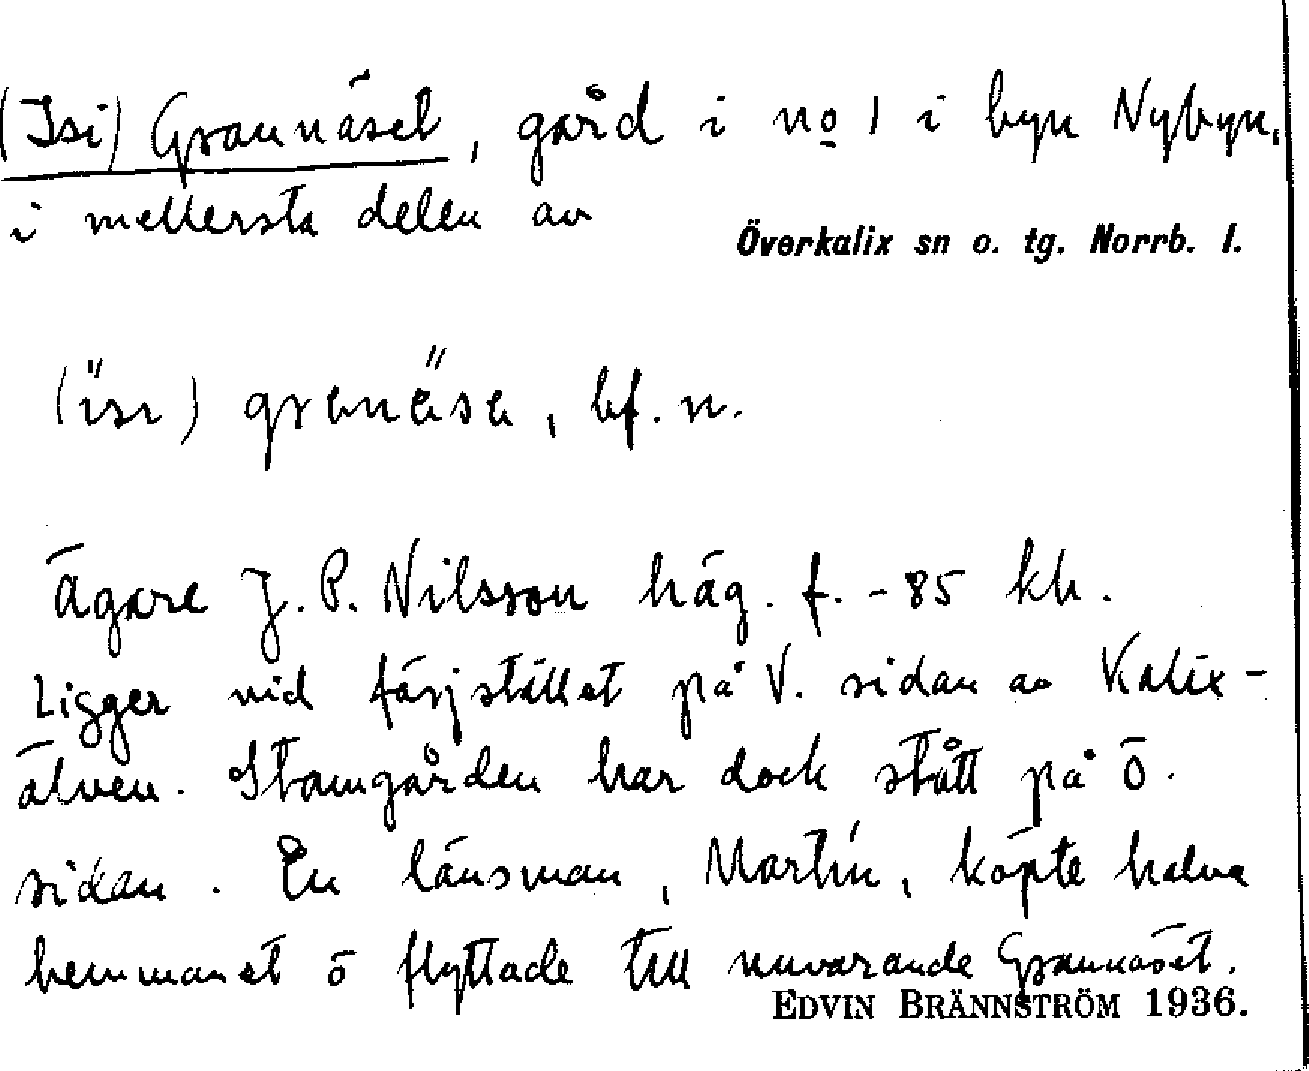 (Isi) Grannäset, gård i no 1 i byn Nybyn,
i mellersta delen av
Överkalix sn o. tg. Norrb. l.
bf. n.
Ägare J. P. Nilsson häg. f. -85 kh.
Ligger vid färjstället på V. sidan av Kalix-
älven. Stamgården har dock stått på ö.
sidan. En länsman, Martin, köpte halva
hemmanet o flyttade till nuvarande Grannäset.
EDVIN BRÄNNSTRÖM 1936.